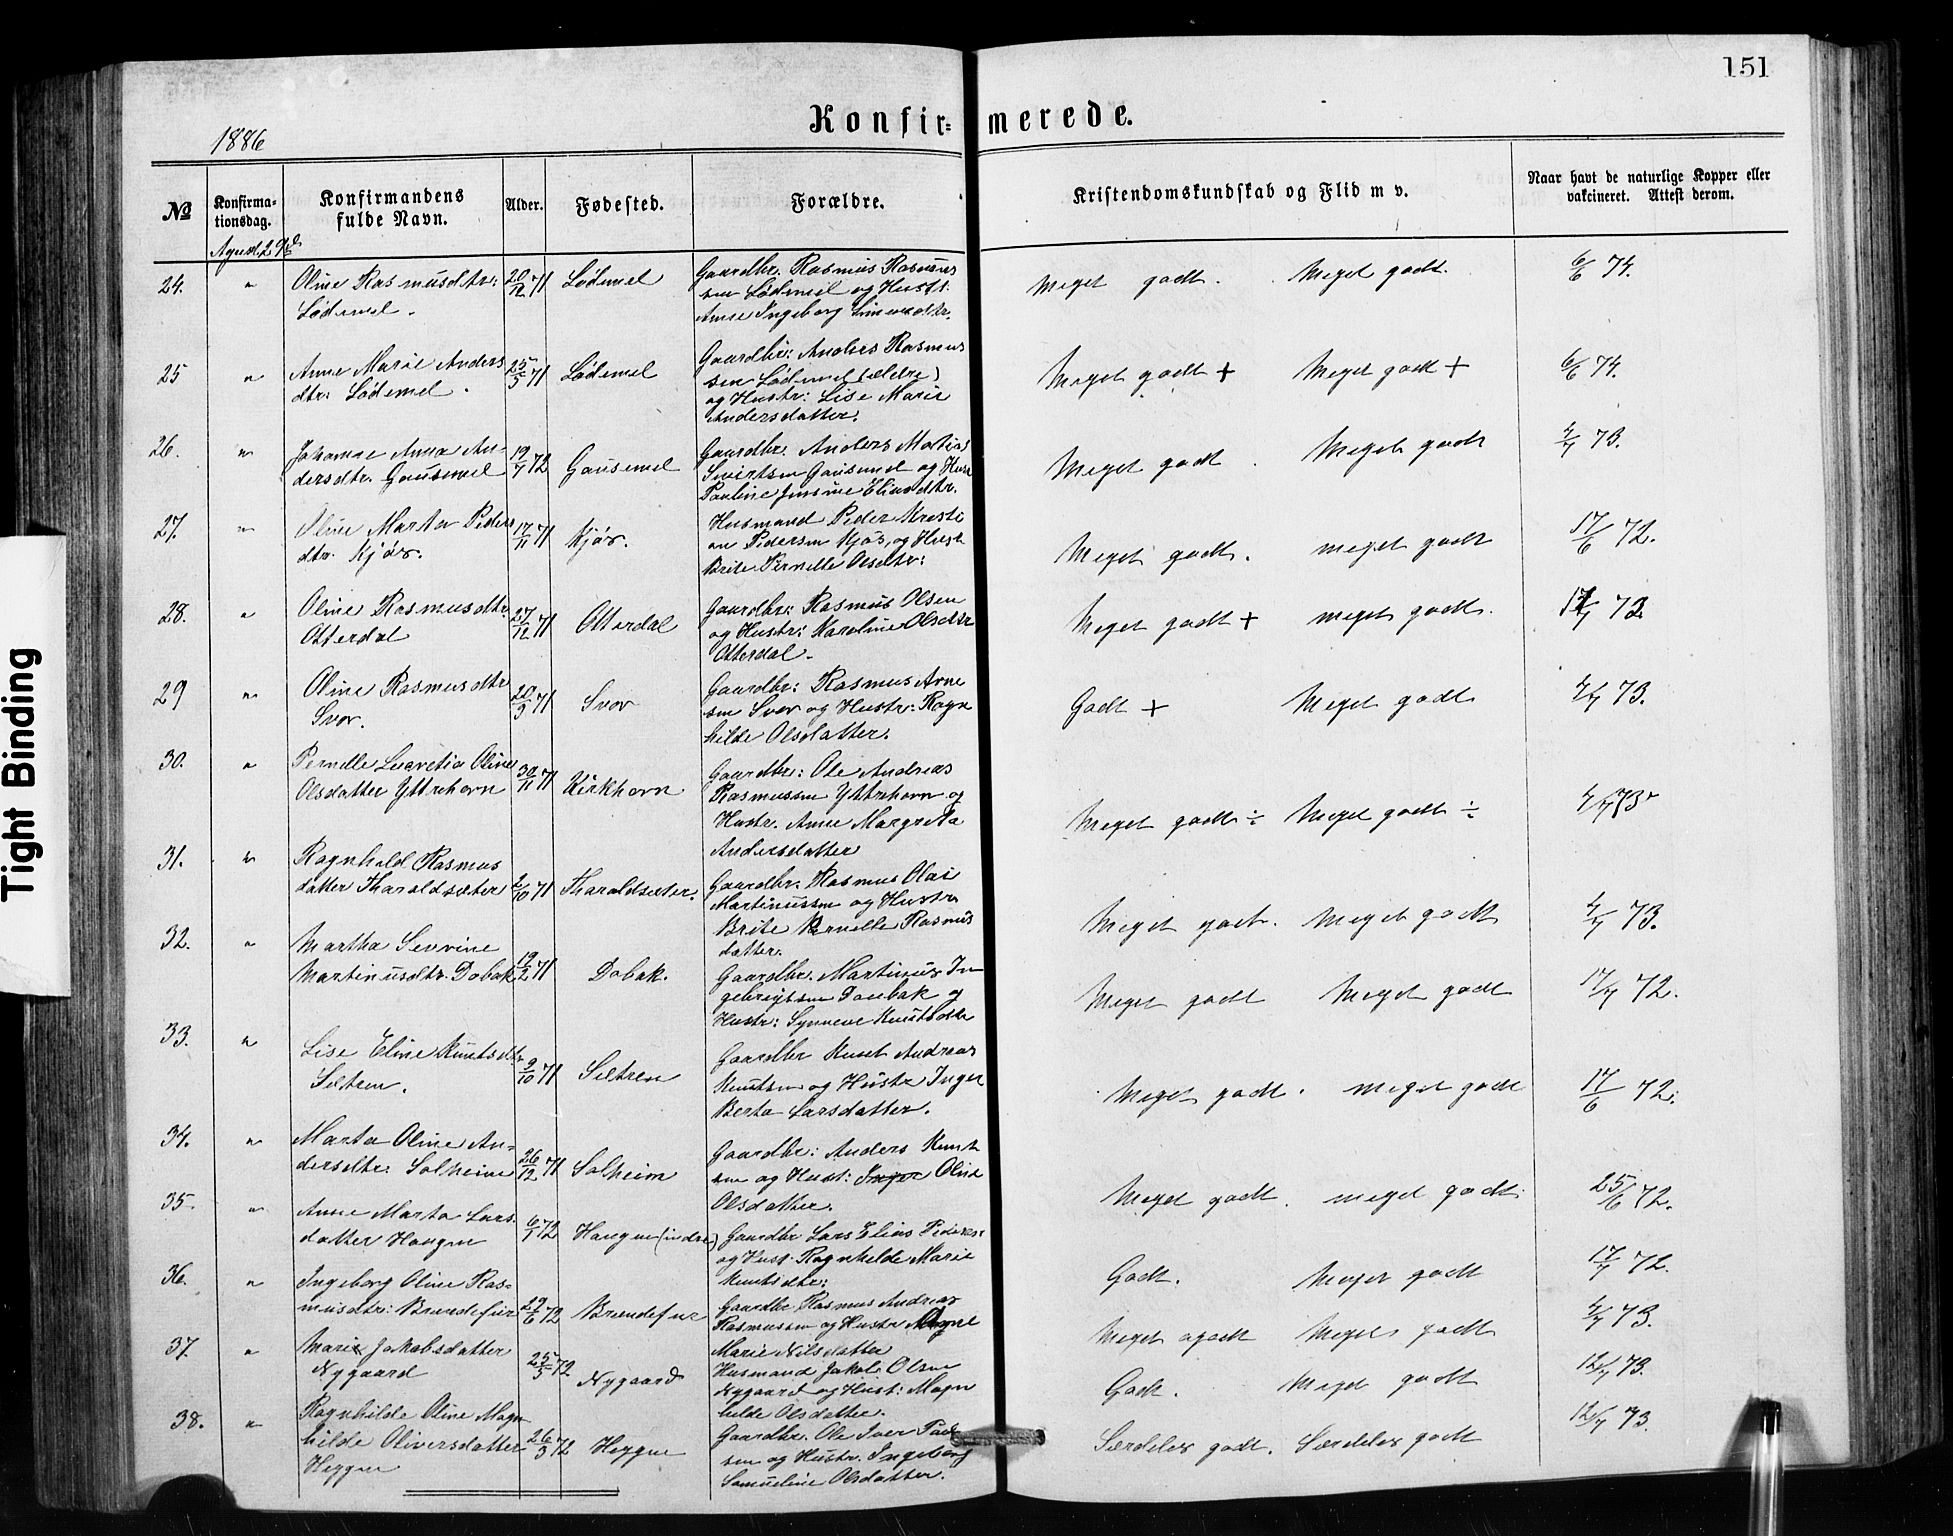 151
Konfir- merede.
1886
№ Konfirma- tionsdag. Konfirmandens fulde Navn. Alder. Fødested. Forældre. Kristendomskundskab og Flid m v. Naar havt de naturlige Kopper eller vakcineret. Attest derom.
24. " Oline Rasmusdtr: 20/12 71 Lødemel Gaardbr. Rasmus Rasmus Meget godt. Meget godt. 6/6 74.
Lødemel. sen Lødemel og Hustr.
Anne Ingeborg
25 " Anne Marie Anders 25/5 71 Lødemel Gaardbr: Anders Rasmus Meget godt + Meget godt + 6/6 74.
dtr: Lødemel. sen Lødemel (ældre)
og Hustr: Lise Marie
Andersdatter.
26. " Johanne Anna An- 19/7 72 Gausemel Gaardbr. Anders Matias Meget godt. Meget godt 4/7 73.
dersdtr. Gausemel Sivertsen Gausemel og Hust
Pauline Jensine Eliasdtr.
27. " Oline Marta Peders 17/11 71 Kjøs. Husmand Peder Kristi Meget godt. meget godt 17/6 72.
dtr. Kjøs. an Pedersen Kjøs, og Hust
Brite Pernelle Olsdtr:
28. " Oline Rasmusdtr. 27/12 71 Otterdal Gaardbr: Rasmus Olsen Meget godt + meget godt. 73
Otterdal og Hustr: Karoline Olsdtr
Otterdal.
29 " Oline Rasmusdtr 20/9 71 Svor Gaardbr: Rasmus Arne Godt + Meget godt 4/7 73.
Svor. sen Svor og Hustr: Ragn
hilde Olsdatter.
30. " Pernelle Lucretia Oline 30/11 71 Kirkhorn Gaardbr: Ole Andreas Meget godt ÷ Meget godt ÷ 4/7 73
Olsdatter Yttrehorn Rasmussen Yttrehorn og
Hustr. Anne Margreta
Andersdatter
31. " Ragnhild Rasmus 2/10 71 Tharaldsæter. Gaardbr. Rasmus Olai Meget godt. Meget godt 4/7 73.
datter Tharaldsæter Martinussen og Hustr
Brite Pernelle Rasmus
datter.
32. " Martha Severine 19/2 71 Dobak. Gaardbr. Martinus In Meget godt Meget godt 17/7 72.
Martinusdtr. Dobak gebrigtsen Daubak og
Hustr: Synneve Knutsdtr
33. " Lise Eline Knutsdtr 9/10 71 Sætren Gaardbr Knut Andreas Meget godt. meget godt 17/6 72.
Sætren. Knutsen og Hustr Inger
Berta Larsdatter.
34. " Marta Oline An- 26/12 71 Solheim Gaardbr: Anders Knut Meget godt. meget godt. 25/6 72.
dersdtr. Solheim sen og Hust: Inger Oline
Olsdatter.
35. " Anne Marta Lars 6/1 72 Haugen (indre) Gaardbr Lars Elias Pedersen Godt. Meget godt 17/7 72.
datter Haugen og Hust. Ragnhilde Marie
Knutsdtr:
36. " Ingeborg Oline Ras- 29/6 72 Brendefur Gaardbr. Rasmus Andreas Meget godt Meget godt 4/7 73.
musdtr: Brendefur Rasmussen og Hustr
Marie Nilsdatter
37. " Marie Jakobsdatter 25/5 72 Nygaard Husmand Jakob Olsen Godt. Meget godt 12/7 73.
Nygaard Nygaard og Hust: Magn
hilde Olsdatter.
38. " Ragnhilde Oline Magn 26/3 72 Heggen Gaardbr. Ole Iver Særdeles godt. Særdeles godt 12/7 73.
hilde Oliversdatter sen og Hustr. Ingeborg
Heggen Samueline Olsdatter.
Tight Binding